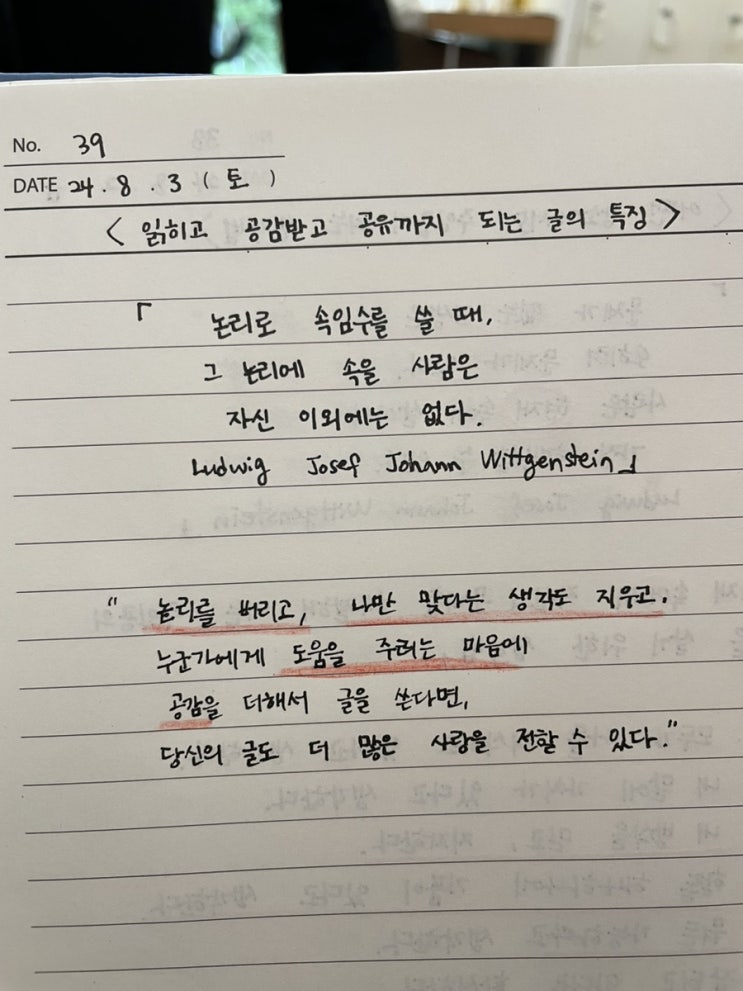 No. 39
DATE 24.8.3(토)
< 읽히고 공감받고 공유까지 되는 글의 특징 >
「 논리로 속임수를 쓸 때,
그 논리에 속을 사람은
자신 이외에는 없다.
Ludwig Josef Johann Wittgenstein」
" 논리를 버리고, 나만 맞다는 생각도 지우고.
누군가에게 도움을 주려는 마음에
공감을 더해서 글을 쓴다면,
당신의 글도 더 많은 사랑을 전할 수 있다."